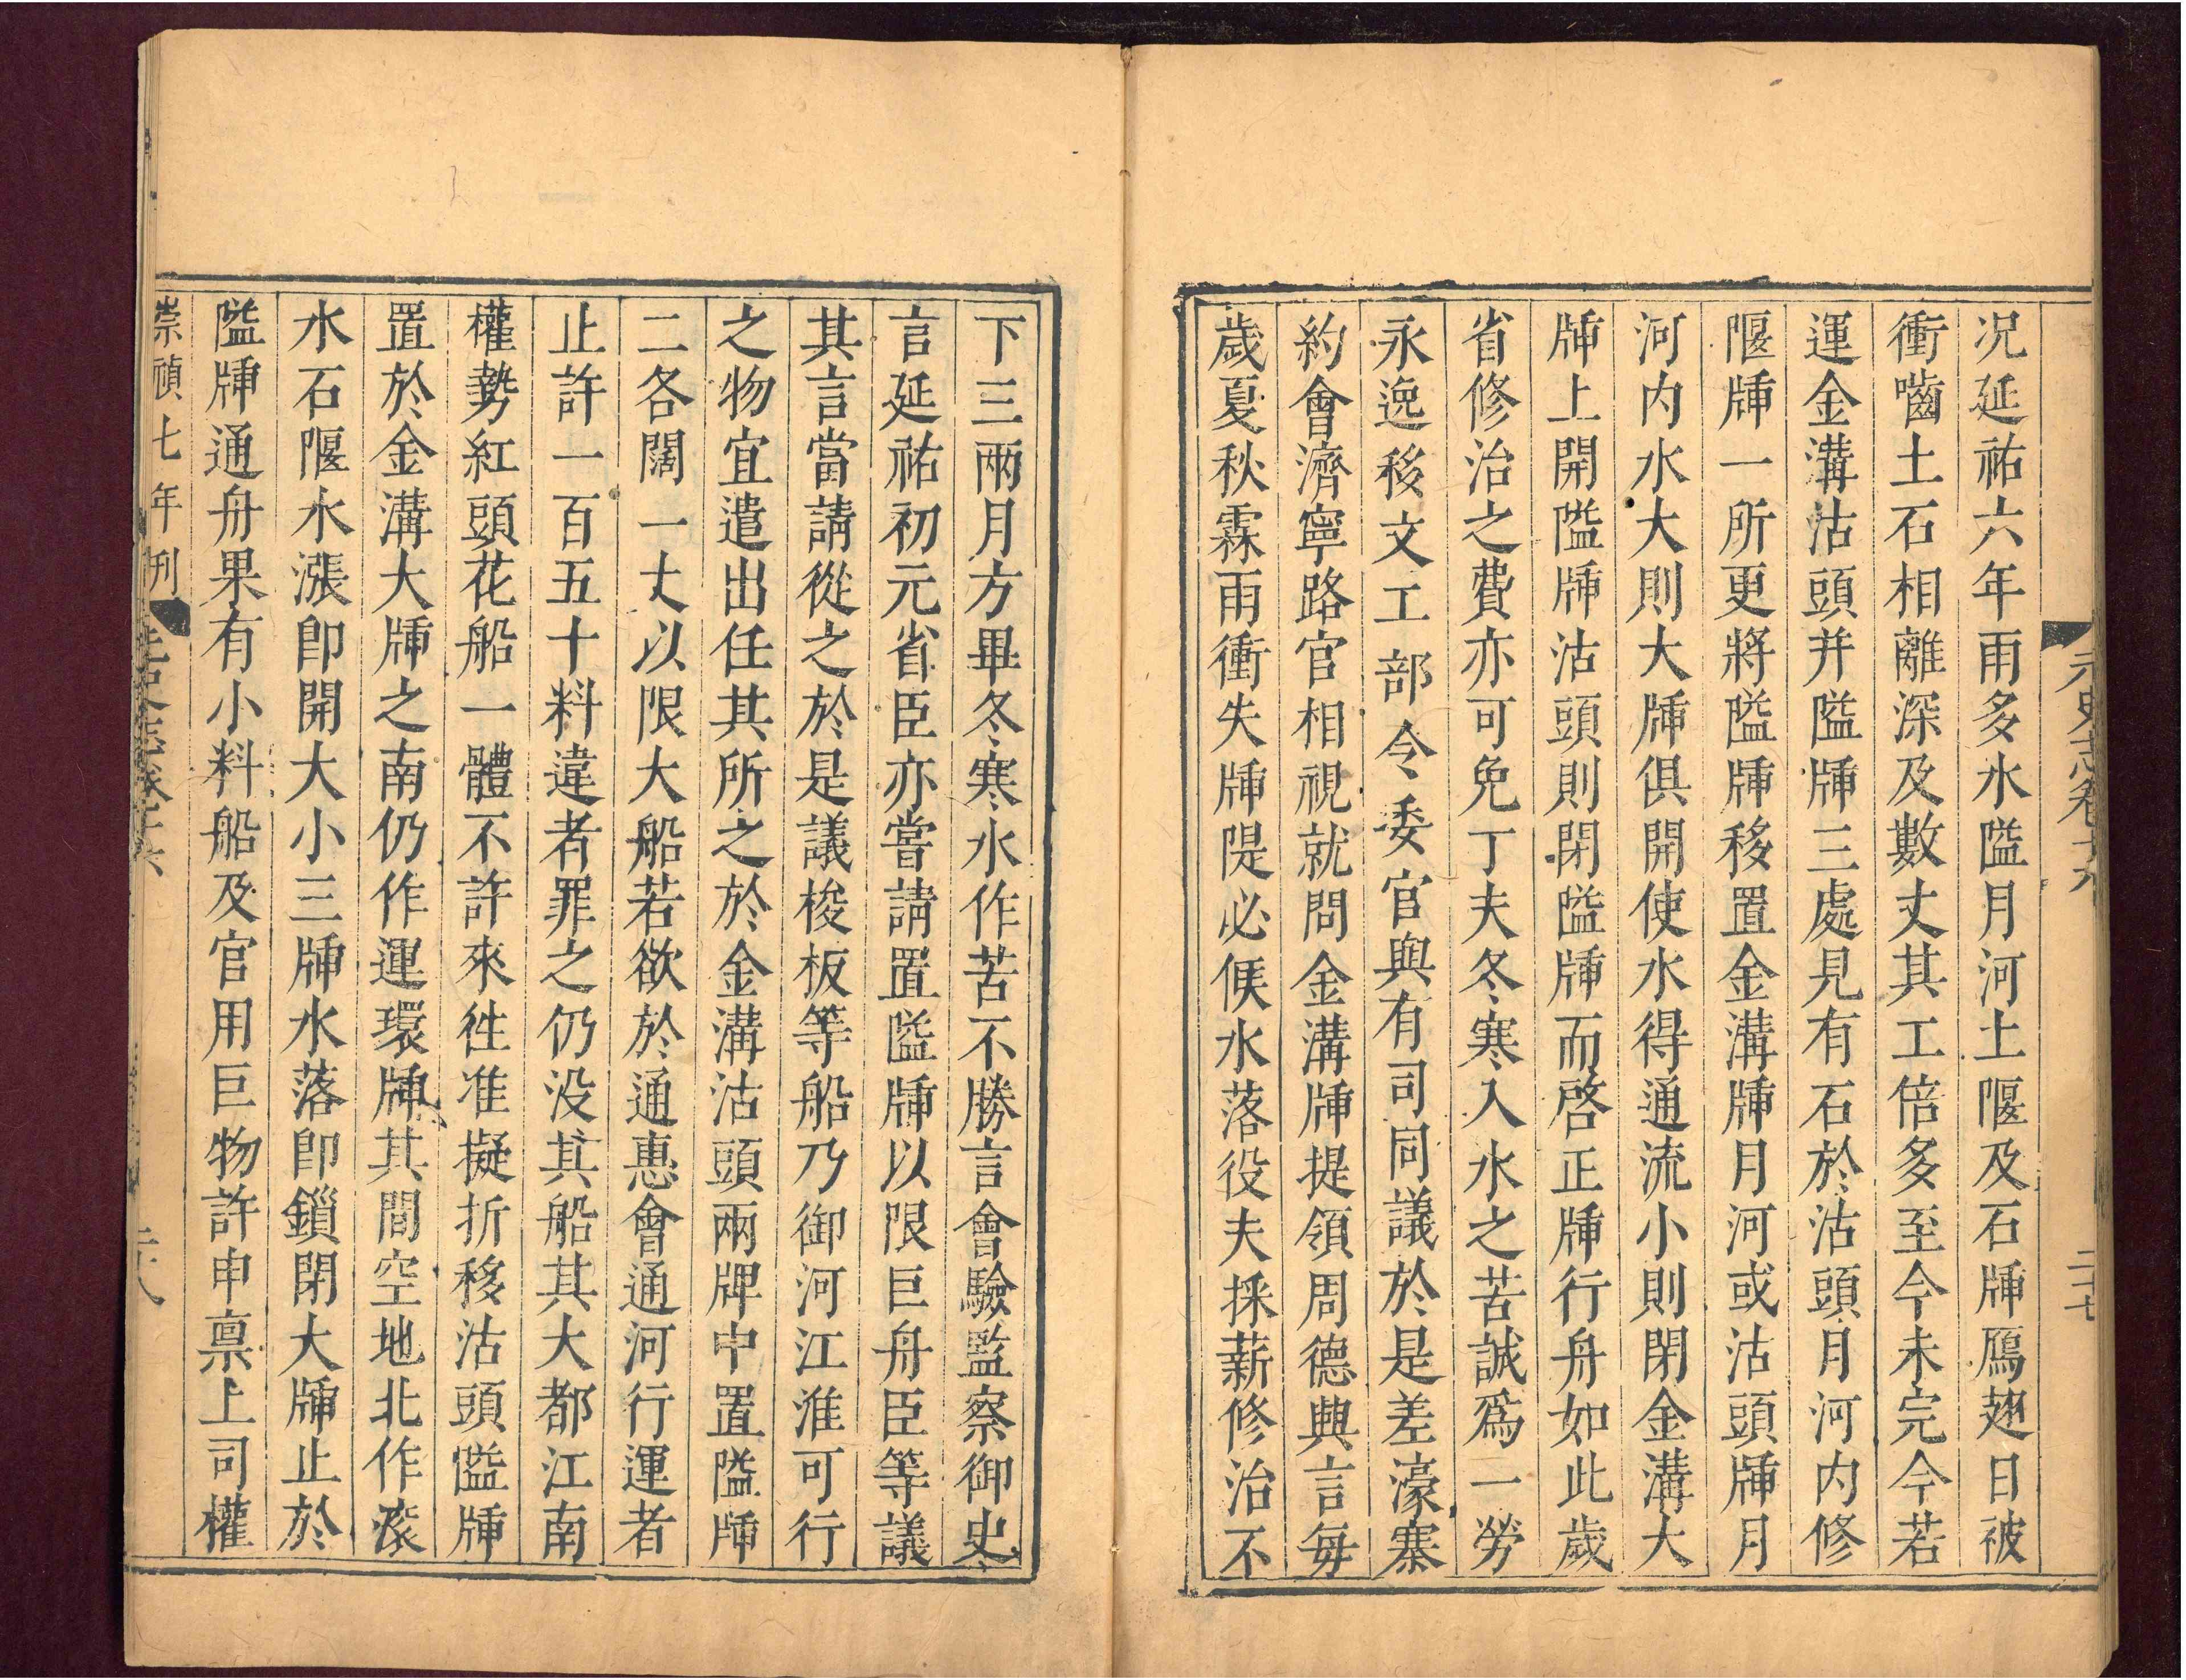 元史志卷十六　二十七
况延祐六年雨多水隘月河土堰及石牐鴈翅日被
衝嚙土石相離深及數丈其工倍多至今未完今若
運金溝沽頭并隘牐三處見有石於沽頭月河内修
堰牐一所更將隘牐移置金溝牐月河或沽頭牐月
河内水大則大牐俱開使水得通流小則閉金溝大
牐上開隘牐沽頭則閉隘牐而啓正牐行舟如此歲
省修治之費亦可免丁夫冬寒入水之苦誠爲一勞
永逸移文工部令委官與有司同議於是差濠寨
約會濟寧路官相視就問金溝牐提領周德興言每
歲夏秋霖雨衝失牐隄必候水落役夫採薪修治不
下三兩月方畢冬寒水作苦不勝言會驗監察御史
言延祐初元省臣亦嘗請置隘牐以限巨舟臣等議
其言當請從之於是議梭板等船乃御河江淮可行
之物宜遣出任其所之於金溝沽頭兩牌中置隘牐
二各闊一丈以限大船若欲於通惠會通河行運者
止許一百五十料違者罪之仍没其船其大都江南
權勢紅頭花船一體不許來徃准擬折移沽頭隘牐
置於金溝大牐之南仍作運環牐其間空地北作滚
水石堰水漲卽開大小三牐水落卽鎖閉大牐止於
隘牐通舟果有小料船及官用巨物許申禀上司權
崇禎七年刋